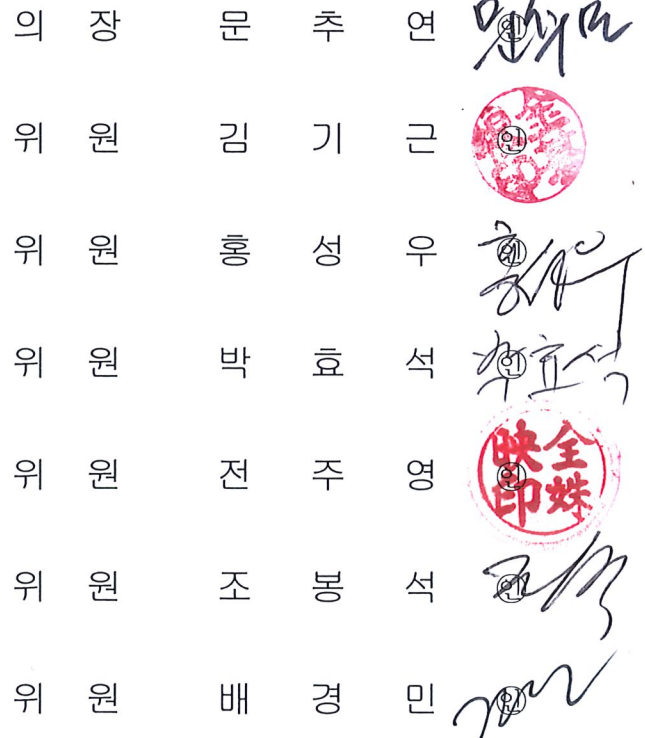 의 장 문 추 연 ㊞
위 원 김 기 근 ㊞
위 원 홍 성 우 ㊞
위 원 박 효 석 ㊞ 박효석
위 원 전 주 영 ㊞ 全姝映印
위 원 조 봉 석 ㊞
위 원 배 경 민 ㊞